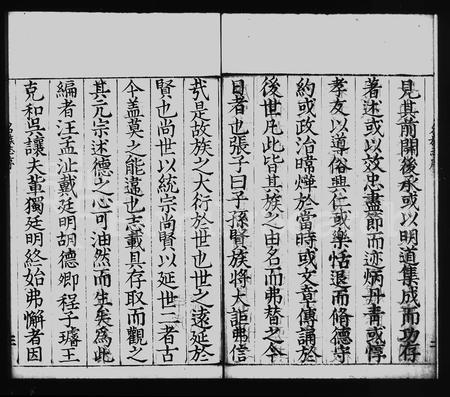 見其前開後承或以明道集成而功存
著述或以效忠盡節而迹炳丹青或惇
孝友以導俗興仁或樂恬退而脩德守
約或政治暐燁於當時或文章傳誦於
後世凡此皆其族之由名而弗替之今
日者也張子曰子孫賢族將大詎弗信
㢤是故族之大衍於世也世之遠延於
賢也尚世以統宗尚賢以延世二者古
今盖莫之能違也志載具存取而觀之
其元宗述德之心可油然而生矣為此
編者汪孟沚戴廷明胡德卿程子璿王
克和吳讓夫軰獨廷明終始弗懈者因